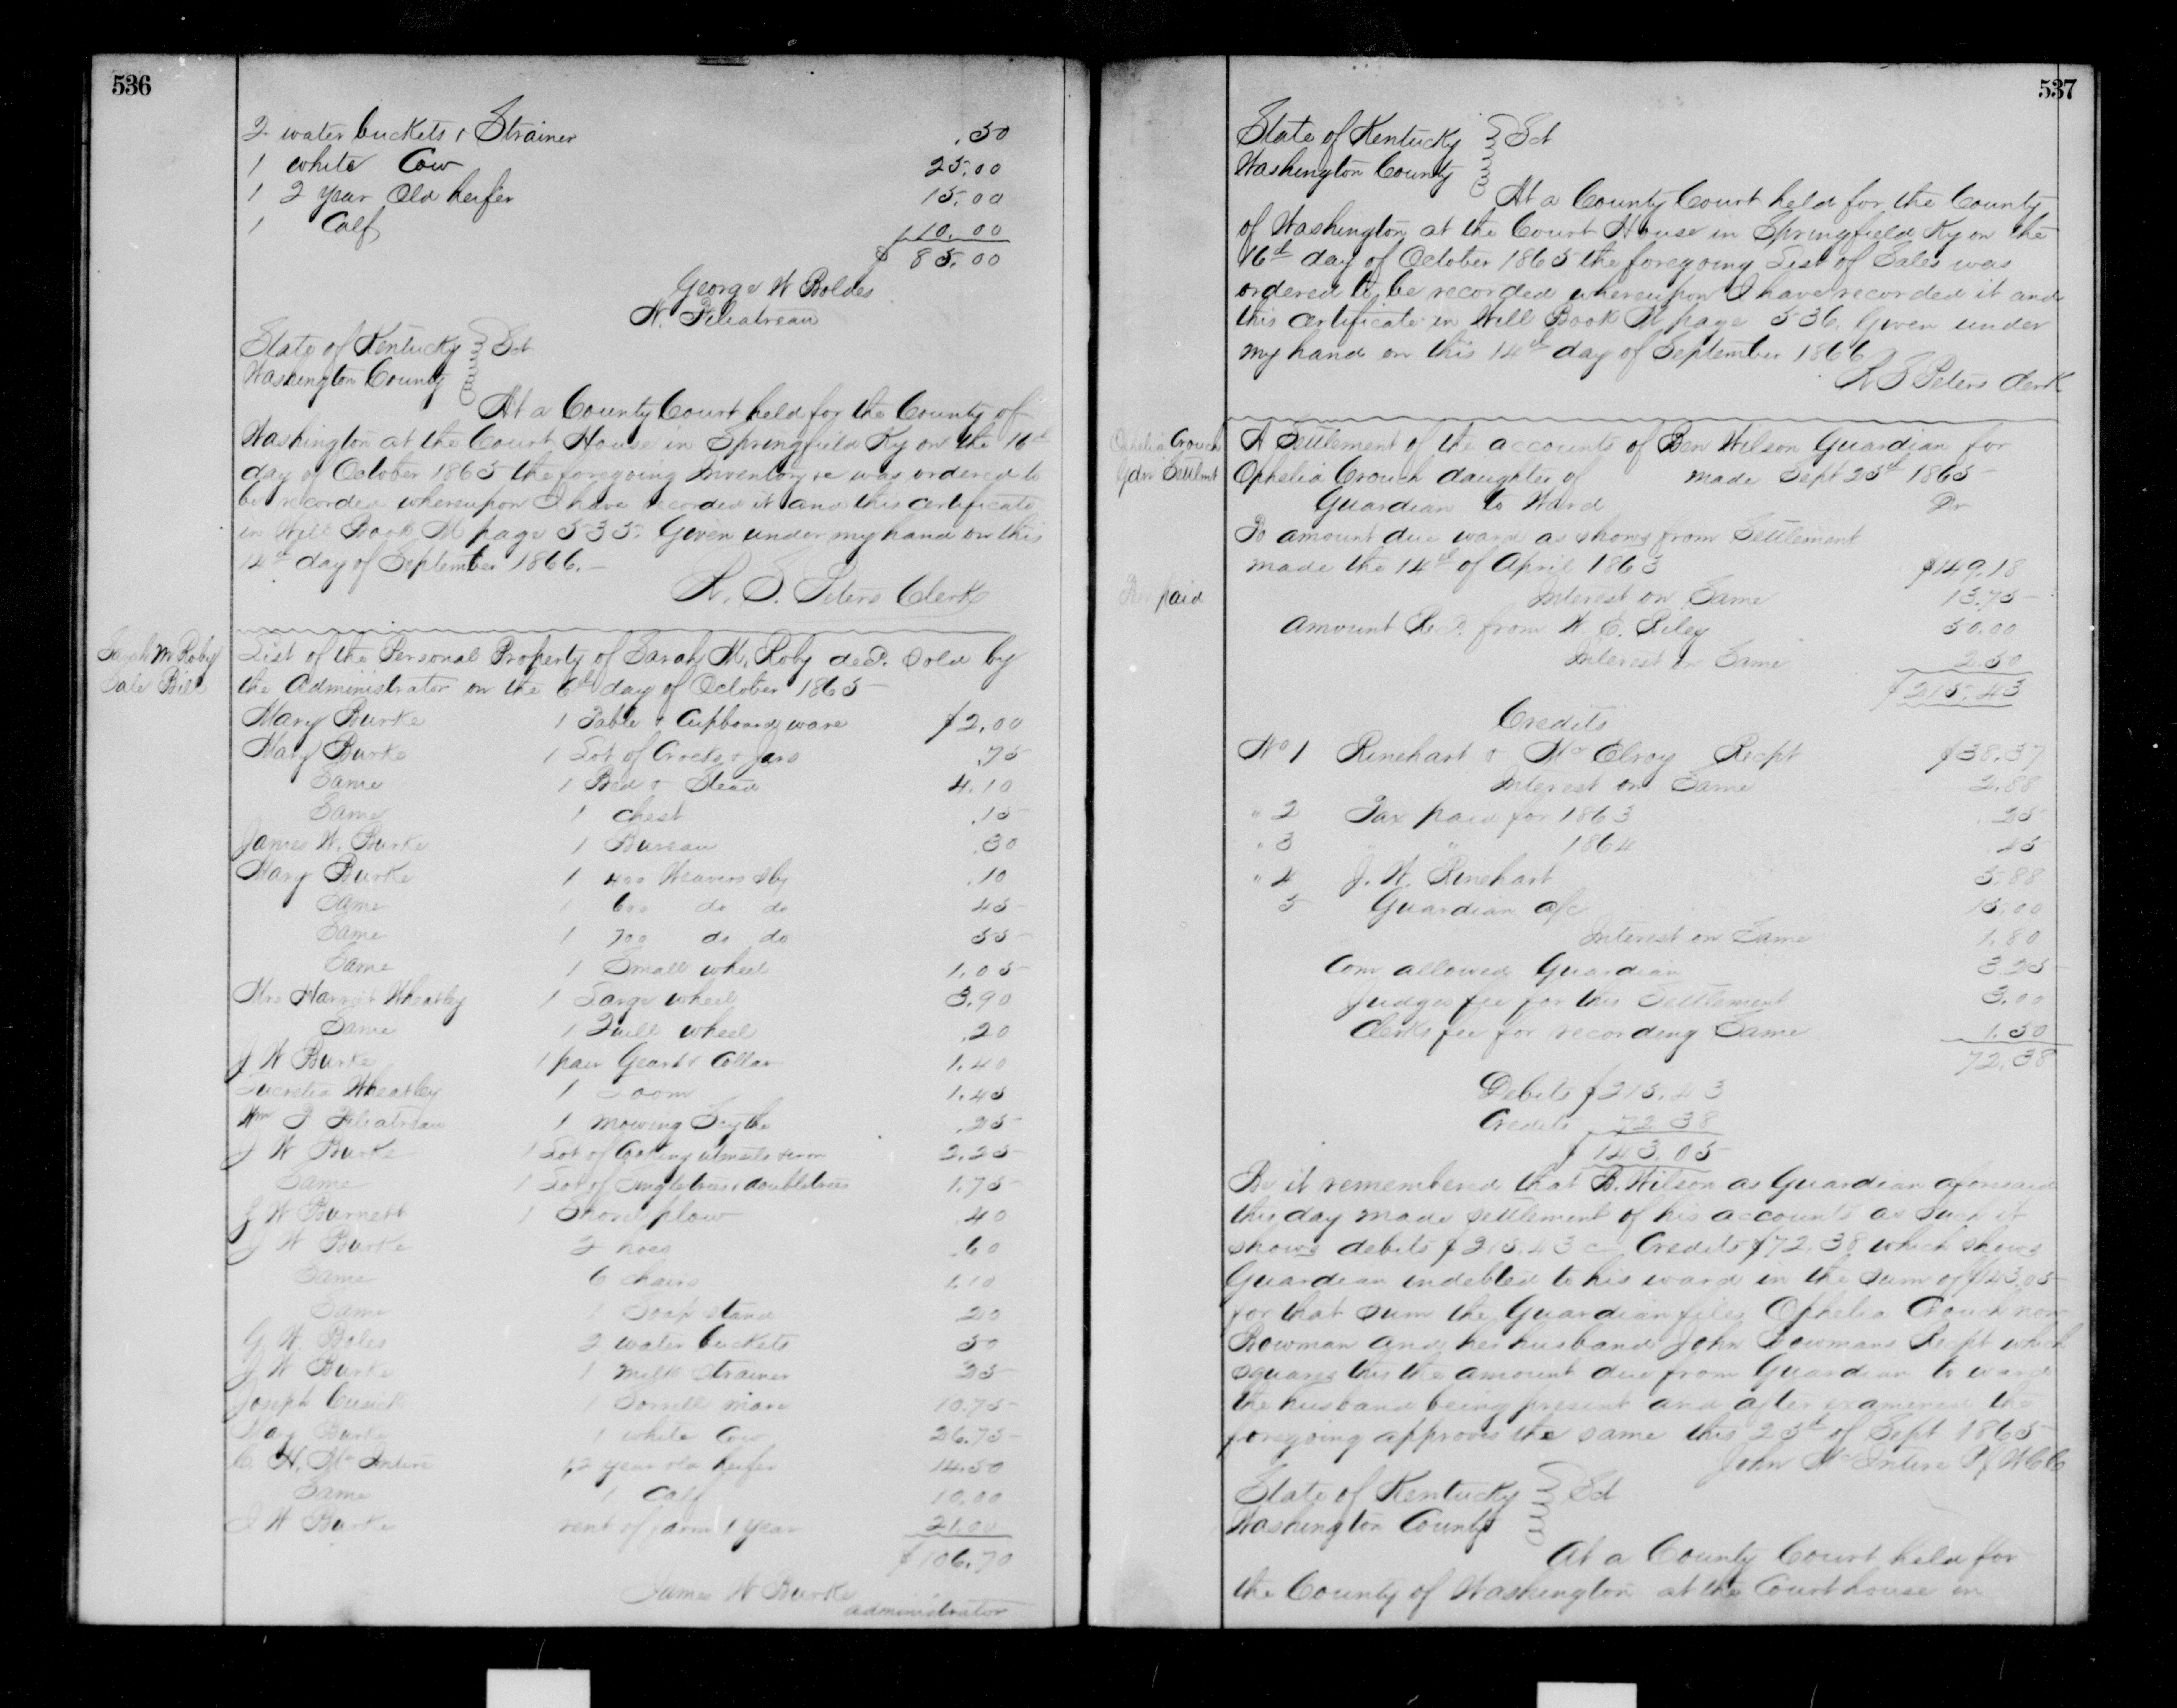 536
2 water buckets & Strainer .50
1 white Cow 25.00
1 2 year Old heifer 15.00
1 Calf 10.00
$ 85.00
George W Boldes
N. Filiatreau
State of Kentucky } Sct
Washington County
At a County Court held for the County of
Washington at the Court House in Springfield Ky on the 16th
day of October 1865 the foregoing Inventory &c was ordered to
be recorded whereupon I have recorded it and this certificate
in Will Book M page 535. Given under my hand on this
14th day of September 1866.
W. S. Peters Clerk
Sarah M Roby
Sale Bill
List of the Personal Property of Sarah M. Roby decd. Sold by
the Administrator on the 6th day of October 1865
Mary Burke 1 Table & Cupboard ware $2.00
Mary Burke 1 Lot of Crocks & Jars .75
Same 1 Bed & Stead 4.10
Same 1 chest .15
James W. Burke 1 Bureau .30
Mary Burke 1 400 Weavers Sly .10
Same 1 600 do do 45
Same 1 700 do do 55
Same 1 Small wheel 1.05
Mrs Harriet Wheatley 1 Large wheel 3.90
Same 1 Quill wheel .20
J W Burke 1 pair Gears & Collar 1.40
Lucretia Wheatley 1 Loom 1.45
Wm F Filiatreau 1 Mowing Scythe .25
J W Burke 1 Lot of Cooking utensils 2.25
Same 1 Lot of Singletrees & doubletrees 1.75
G W Burnett 1 Shovel plow 40
J W Burke 2 hoes .60
Same 6 chairs 1.10
Same 1 Soap stand 20
G W. Boles 2 water buckets 50
J W Burke 1 milk strainer 25
Joseph Cusick 1 Sorrell mare 10.75
Mary Burke 1 white Cow 26.75
C. H. McIntire 1,2 year old heifer 14.50
Same 1 Calf 10.00
J W Burke rent of farm 1 year 21.00
$106.70
James W Burke
administrator
537
State of Kentucky } Sct
Washington County
At a County Court held for the County
of Washington at the Court House in Springfield Ky on the
16th day of October 1865 the foregoing List of Sales was
ordered to be recorded whereupon I have recorded it and
this certificate in Will Book M page 536. Given under
my hand on this 14th day of September 1866
W S Peters Clerk
Ophelia Crouch
Gdn Settlmt
A Settlement of the accounts of Ben Wilson Guardian for
Ophelia Crouch daughter of made Sept 25th 1865
Guardian to Ward Dr
To amount due ward as shows from Settlement
made the 14th of April 1863 $149.18
paid
Interest on Same 13.75
Amount Recd. from W. E. Riley 50.00
Interest on Same 2.50
$215.43
Credits
No 1 Rinehart & McElroy Recpt $38.37
Interest on Same 2.88
" 2 Tax paid for 1863 .25
" 3 " " 1864 .45
" 4 J. W. Rinehart 5.88
5 Guardian a/c 15.00
Interest on Same 1.80
Com allowed Guardian 3.25
Judges fee for this Settlement 3.00
Clerks fee for recording Same 1.50
72.38
Debits $215.43
Credits 72.38
$143.05
Be it remembered that B. Wilson as Guardian aforesaid
this day made settlement of his accounts as such it
shows debits $215.43 c Credits $72.38 which shows
Guardian indebted to his ward in the sum of $143.05
for that sum the Guardian files Ophelia Crouch now
Bowman and her husband John Bowmans Recpt which
squares this the amount due from Guardian to ward
the husband being present and after examined the
foregoing approves the same this 25th of Sept 1865
John McIntire P J W C C
State of Kentucky } Sct
Washington County
At a County Court held for
the County of Washington at the Courthouse in